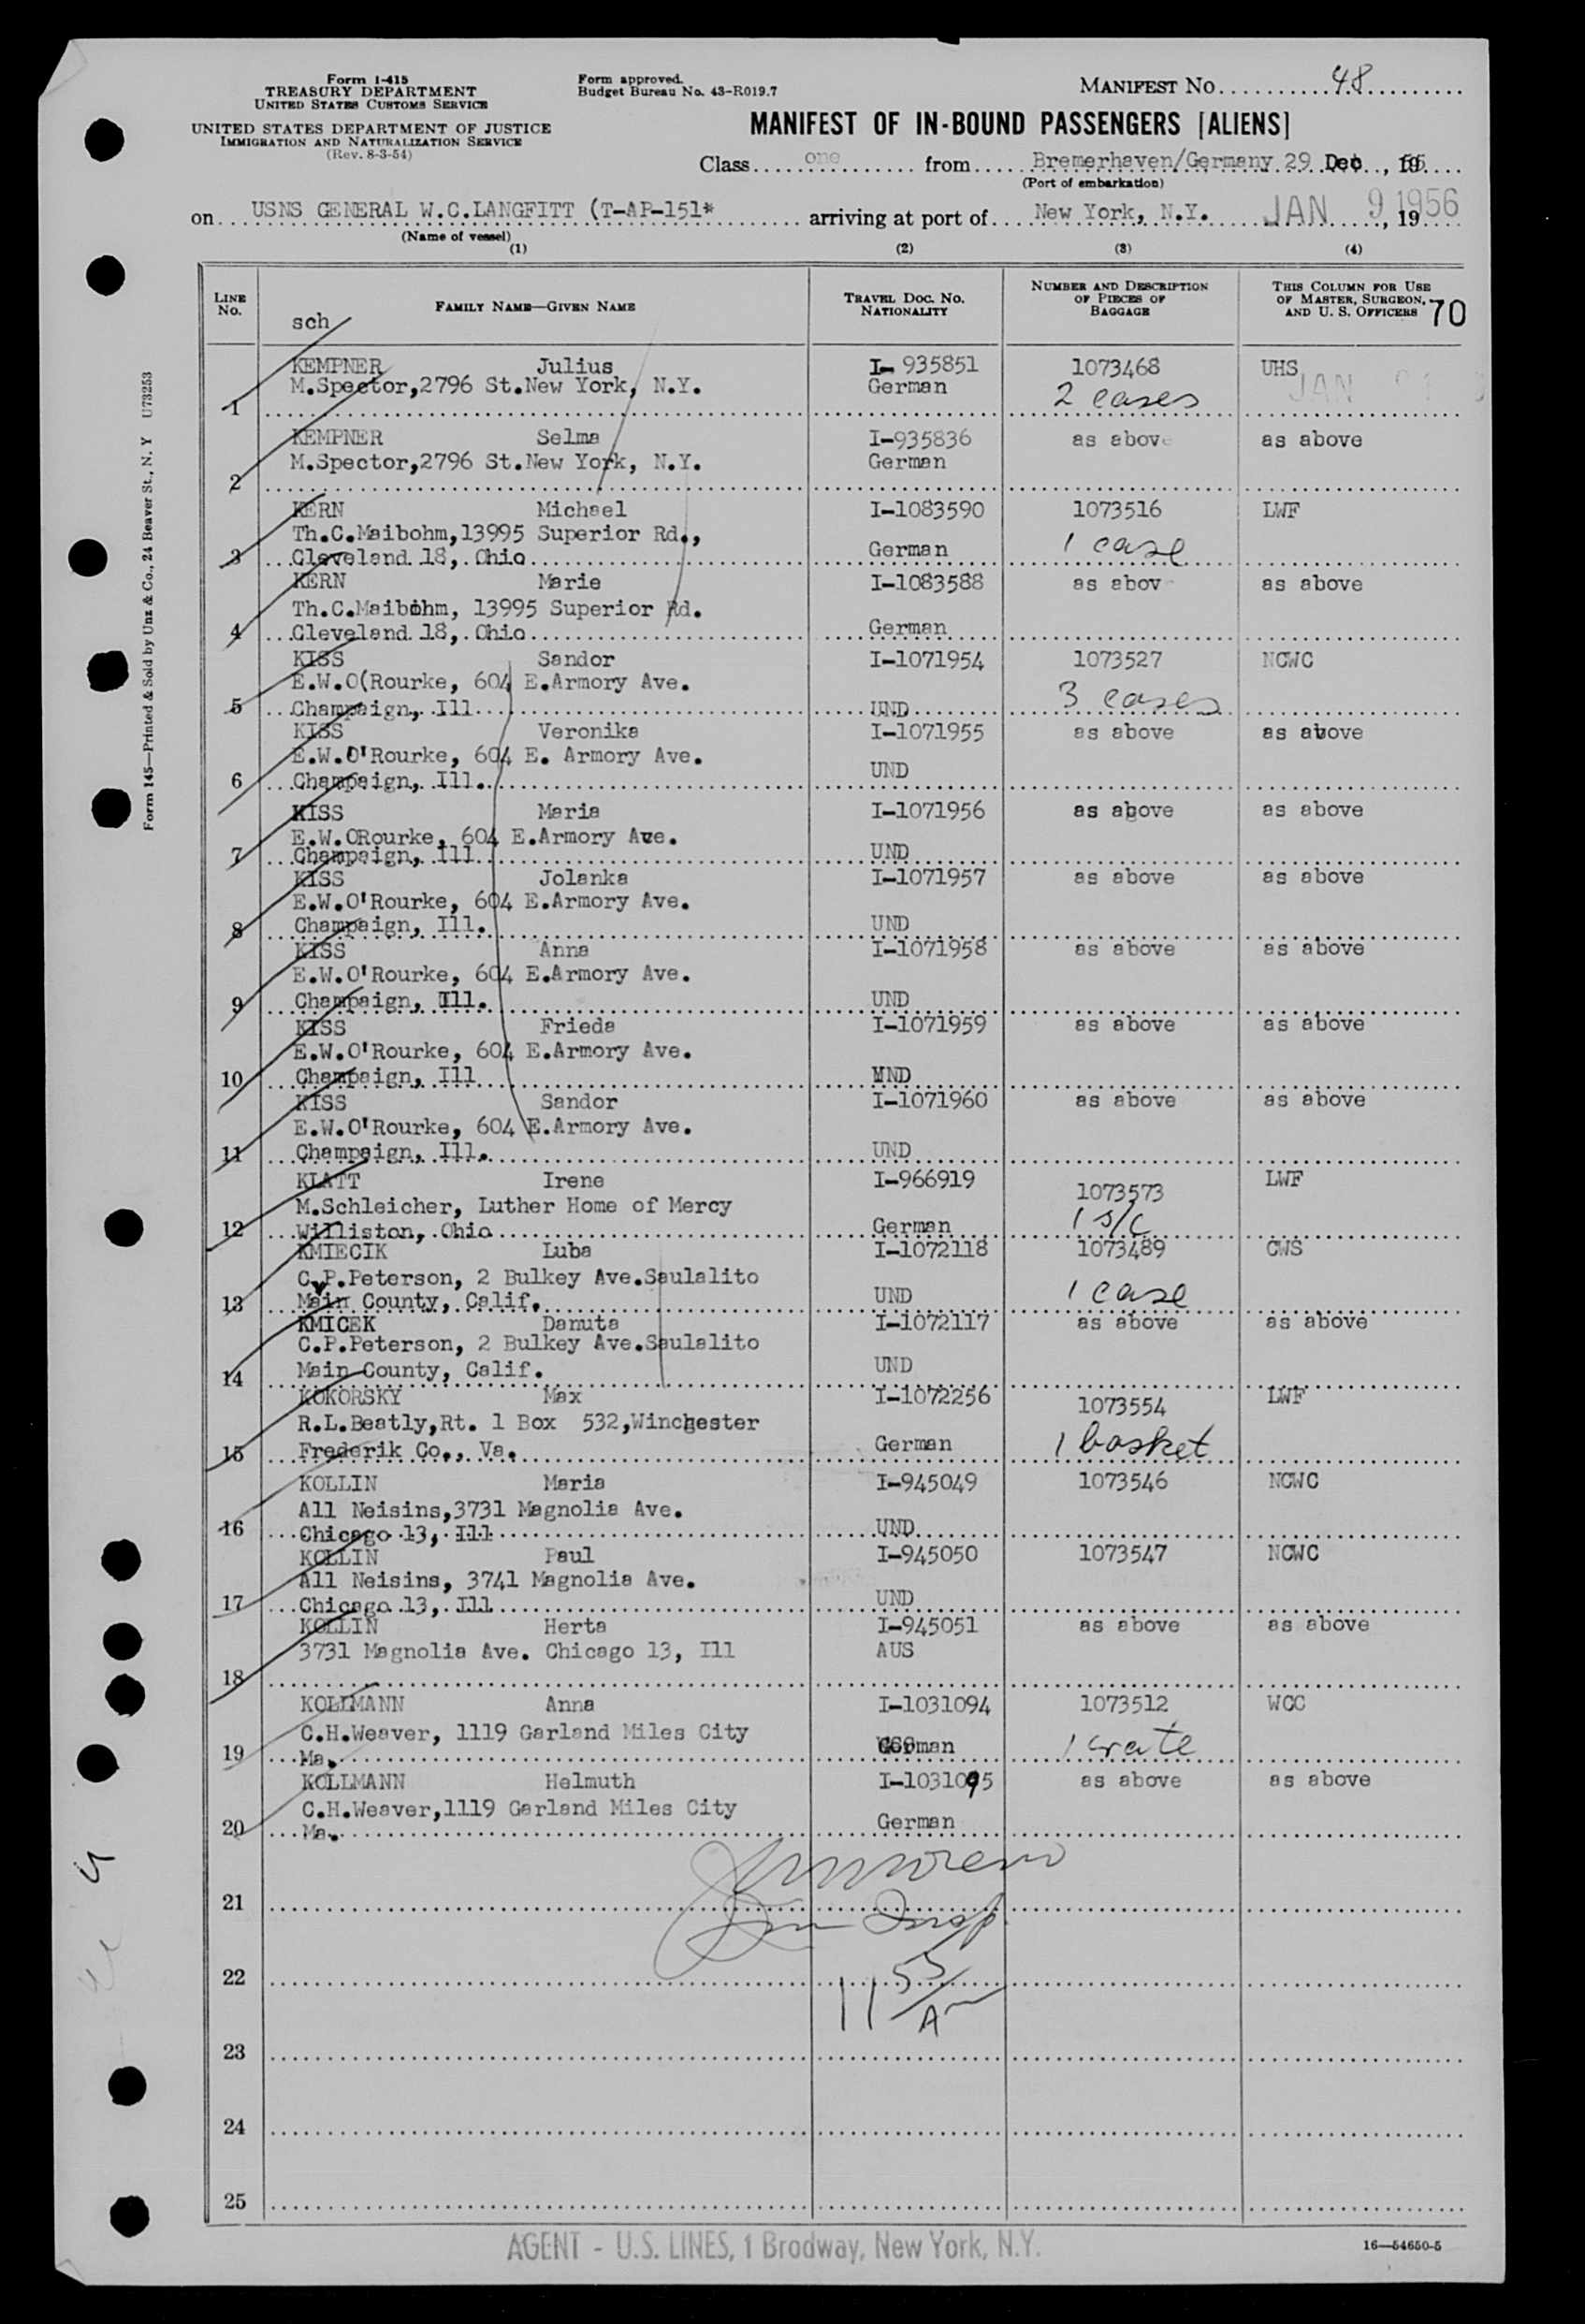 Form I-415
TREASURY DEPARTMENT
UNITED STATES CUSTOMS SERVICE
UNITED STATES DEPARTMENT OF JUSTICE
IMMIGRATION AND NATURALIZATION SERVICE
(Rev. 8-3-54)
Form approved.
Budget Bureau No. 43-R019.7
MANIFEST NO. 48
MANIFEST OF IN-BOUND PASSENGERS [ALIENS]
Class one from Bremerhaven/Germany 29 Dec , 1955
(Port of embarkation)
on USNS GENERAL W.C.LANGFITT (T-AP-151* arriving at port of New York, N.Y. JAN 9 1956 , 19
(Name of vessel)
(1) (2) (3) (4)
LINE NO.
FAMILY NAME—GIVEN NAME
TRAVEL DOC. NO. NATIONALITY
NUMBER AND DESCRIPTION OF PIECES OF BAGGAGE
THIS COLUMN FOR USE OF MASTER, SURGEON, AND U. S. OFFICERS 70
sch
KEMPNER Julius I- 935851 1073468 UHS
M.Spector,2796 St.New York, N.Y. German 2 cases JAN
1
KEMPNER Selma I-935836 as above as above
M.Spector,2796 St.New York, N.Y. German
2
KERN Michael I-1083590 1073516 LWF
Th.C.Maibohm,13995 Superior Rd.,
3 Cleveland 18, Ohio German 1 case
KERN Marie I-1083588 as abov as above
Th.C.Maibohm, 13995 Superior Rd.
4 Cleveland 18, Ohio German
KISS Sandor I-1071954 1073527 NCWC
E.W.O(Rourke, 604 E.Armory Ave.
5 Champaign, Ill UND 3 cases
KISS Veronika I-1071955 as above as above
E.W.O'Rourke, 604 E. Armory Ave.
6 Champaign, Ill. UND
KISS Maria I-1071956 as above as above
E.W.ORourke, 604 E.Armory Ave.
7 Champaign, Ill UND
KISS Jolanka I-1071957 as above as above
E.W.O'Rourke, 604 E.Armory Ave.
8 Champaign, Ill. UND
KISS Anna I-1071958 as above as above
E.W.O'Rourke, 604 E.Armory Ave.
9 Champaign, Ill. UND
KISS Frieda I-1071959 as above as above
E.W.O'Rourke, 604 E.Armory Ave.
10 Champaign, Ill UND
KISS Sandor I-1071960 as above as above
E.W.O'Rourke, 604 E.Armory Ave.
11 Champaign, Ill. UND
KLATT Irene I-966919 1073573 LWF
M.Schleicher, Luther Home of Mercy
12 Williston, Ohio German 1 s/c
KMIECIK Luba I-1072118 1073489 CWS
C.P.Peterson, 2 Bulkey Ave.Saulalito
13 Main County, Calif. UND 1 case
KMICEK Danuta I-1072117 as above as above
C.P.Peterson, 2 Bulkey Ave.Saulalito
14 Main County, Calif. UND
KOKORSKY Max I-1072256 1073554 LWF
R.L.Beatly,Rt. 1 Box 532,Winchester
15 Frederik Co., Va. German 1 basket
KOLLIN Maria I-945049 1073546 NCWC
All Neisins,3731 Magnolia Ave.
16 Chicago 13, Ill UND
KOLLIN Paul I-945050 1073547 NCWC
All Neisins, 3741 Magnolia Ave.
17 Chicago 13, Ill UND
KOLLIN Herta I-945051 as above as above
3731 Magnolia Ave. Chicago 13, Ill AUS
18
KOLLMANN Anna I-1031094 1073512 WCC
C.H.Weaver, 1119 Garland Miles City
19 Ma. German 1 crate
KOLLMANN Helmuth I-1031095 as above as above
C.H.Weaver,1119 Garland Miles City
20 Ma. German
21
22
11 55/A
23
24
25
AGENT - U.S. LINES, 1 Brodway, New York, N.Y.
16—54650-5
Form 145—Printed & Sold by Unz & Co., 24 Beaver St., N. Y U73253